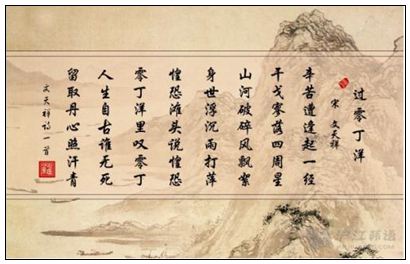 过零丁洋
宋 文天祥
辛苦遭逢起一经
干戈寥落四周星
山河破碎风飘絮
身世浮沉雨打萍
惶恐滩头说惶恐
零丁洋里叹零丁
人生自古谁无死
留取丹心照汗青
文天祥诗一首